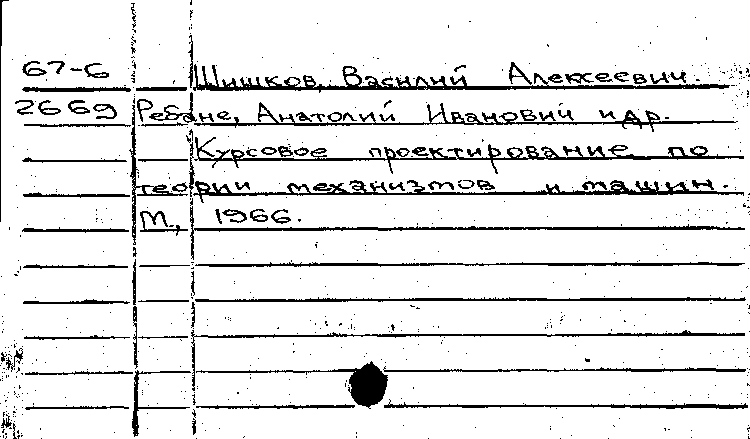 67-6 Шишков, Василий Алексеевич.
2669 Ребане, Анатолий Иванович и др.
Курсовое проектирование по
теории механизмов и машин.
М., 1966.